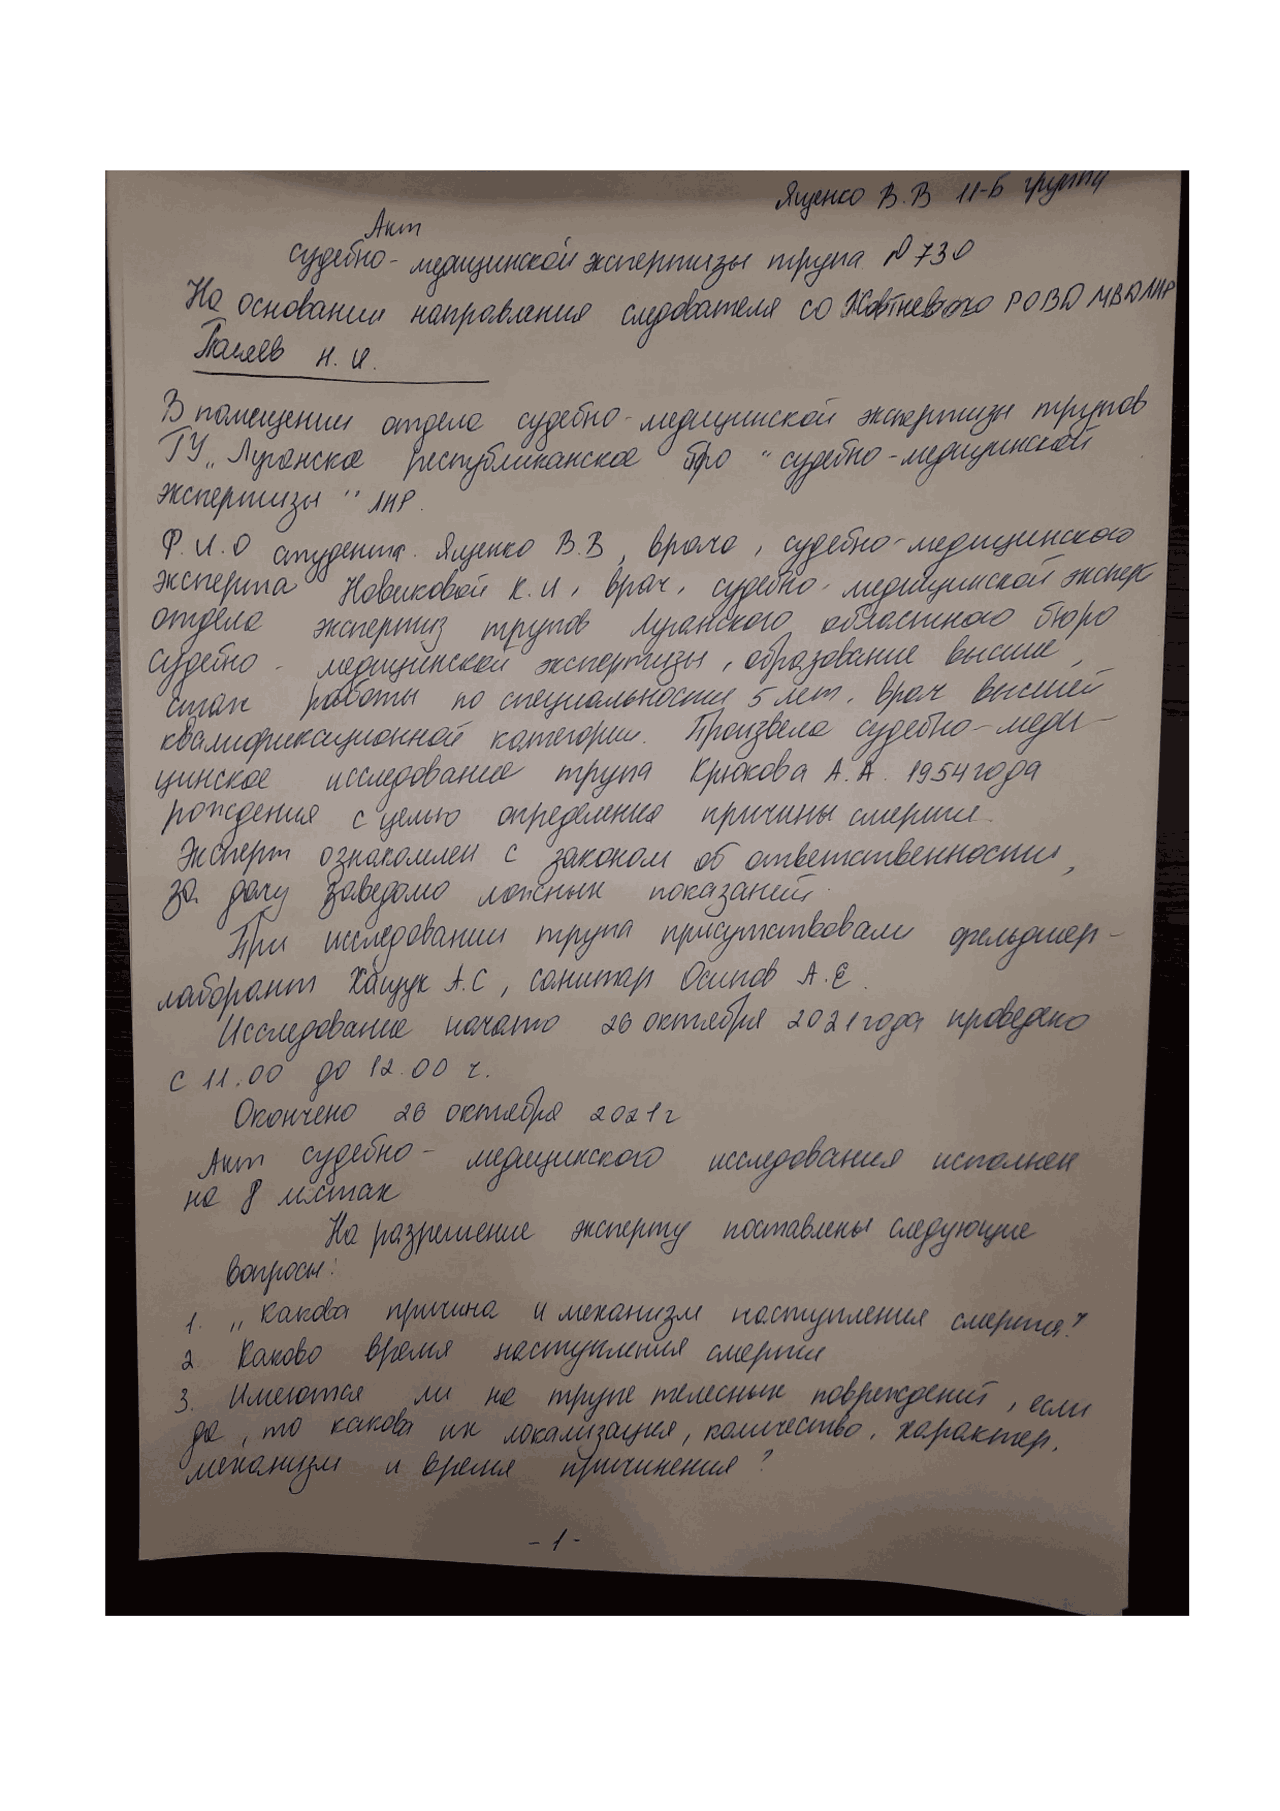 Ященко В.В 11-Б группа
Акт
судебно-медицинской экспертизы трупа № 730
На основании направления следователя СО Жовтневого РОВД МВД ЛНР
Н. И.
В помещении отдела судебно-медицинской экспертизы трупов
ГУ „Луганское республиканское бро "судебно-медицинской
экспертизы" ЛНР.
Ф.И.О студента. Ященко В.В, врача, судебно-медицинского
эксперта Новиковой К.И, врач, судебно-медицинской экспек
отдела экспертиз трупов Луганского областного бюро
судебно-медицинской экспертизы, образование высшее,
стаж работы по специальности 5 лет, врач высшей
квалификационной категории. Произвела судебно-меди-
цинское исследование трупа Крюкова А.А. 1954 года
рождения с целью определения причины смерти.
Эксперт ознакомлен с законом об ответственности,
за дачу заведомо ложных показаний.
При исследовании трупа присутствовали фельдшер-
лаборант Хащук А.С, санитар Осипов А.Е.
Исследование начато 26 октября 2021 года проведено
с 11.00 до 12.00 ч.
Окончено 26 октября 2021г
Акт судебно-медицинского исследования исполнен
на 8 листах
На разрешение эксперту поставлены следующие
вопросы:
1. „Какова причина и механизм наступления смерти?
2 Каково время наступления смерти
3. Имеются ли на трупе телесных повреждений, если
да, то какова их локализация, количество, характер,
механизм и время причинения?
-1-